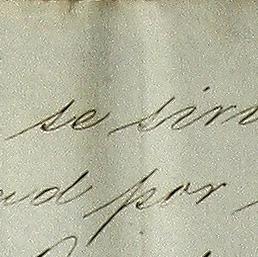 se sirv
ud por